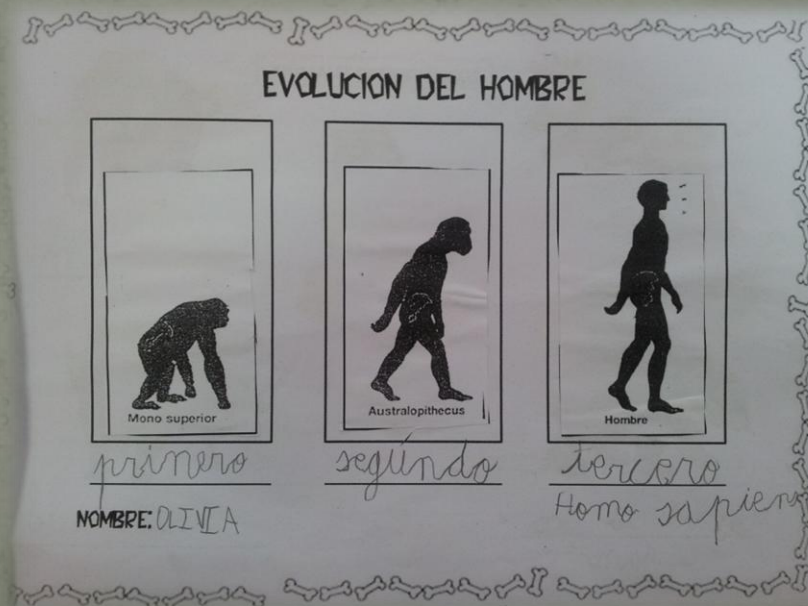 EVOLUCION DEL HOMBRE
Mono superior
Australopithecus
Hombre
prinero
segúndo
tercero
Homo sapiens
NOMBRE: OLIVIA